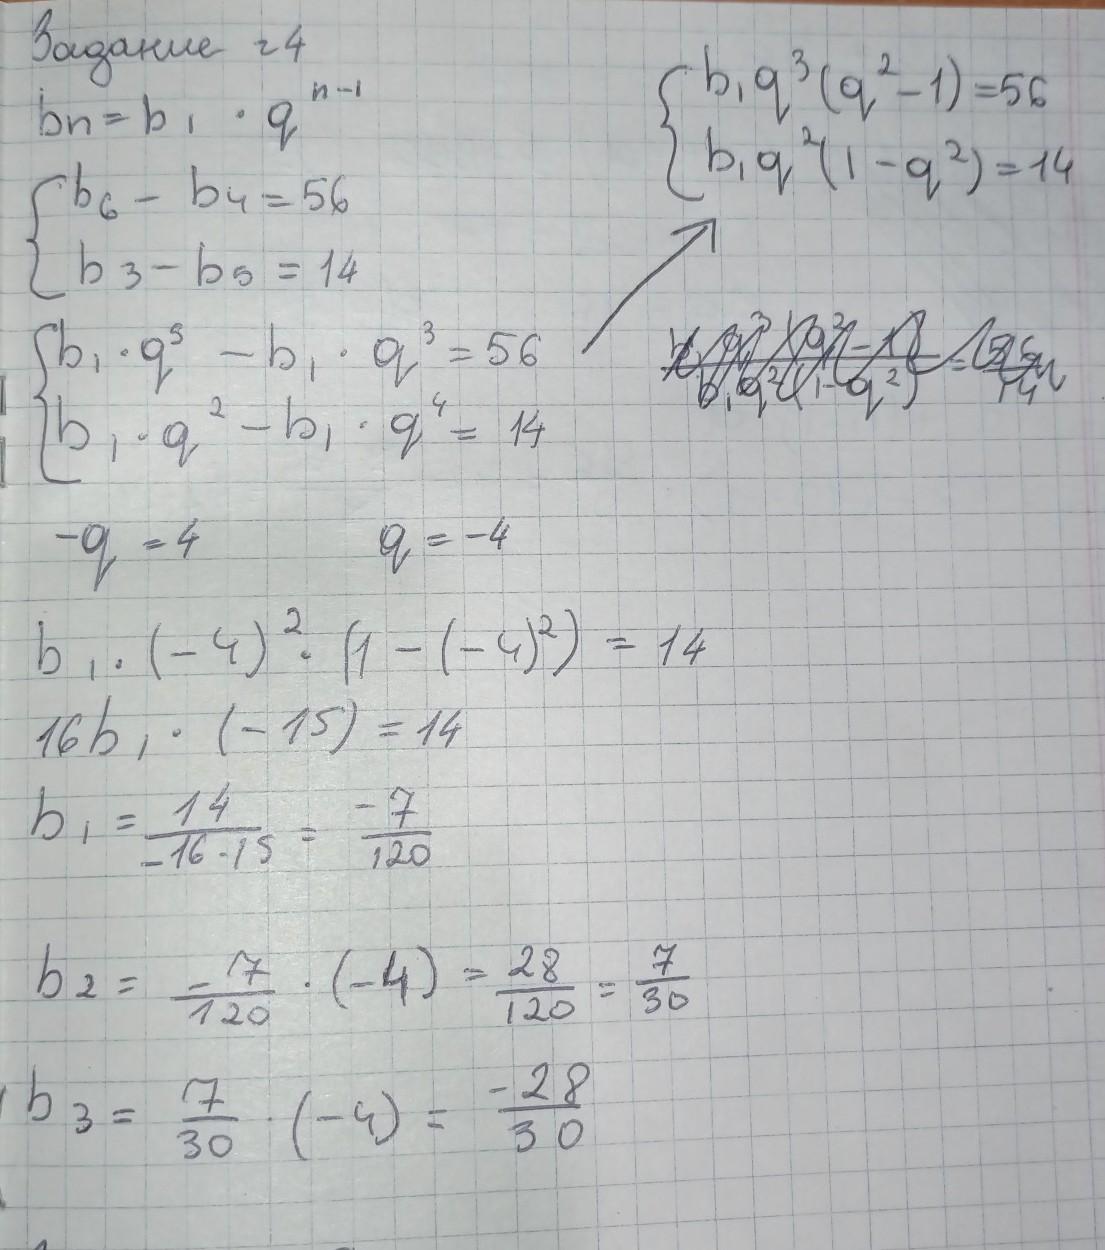 Задание 4
bn = b₁ · q^(n-1)
b₆ - b₄ = 56
b₃ - b₅ = 14
b₁ · q⁵ - b₁ · q³ = 56
b₁ · q² - b₁ · q⁴ = 14
b₁q³(q² - 1) = 56
b₁q²(1 - q²) = 14
-q = 4    q = -4
b₁ · (-4)² · (1 - (-4)²) = 14
16b₁ · (-15) = 14
b₁ = 14/(-16·15) = -7/120
b₂ = -7/120 · (-4) = 28/120 = 7/30
b₃ = 7/30 · (-4) = -28/30